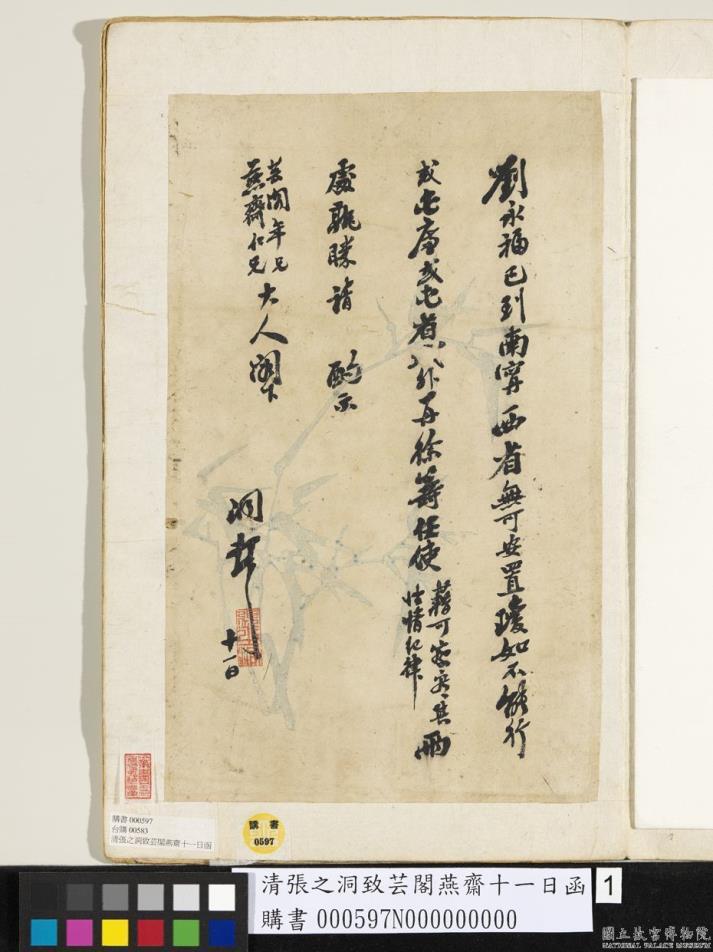 劉永福已到南甯西省無可安置瓊如不能行
或屯廉或屯省以外再徐籌任使 藉可察其
性情紀律 兩
處孰勝請 酌示
芸閣年兄
燕齋仁兄 大人閣下
洞頓
十一日
購書 000597
台購 00583
清張之洞致芸閣燕齋十一日函
購書
0597
清張之洞致芸閣燕齋十一日函
購書 000597N000000000
1
國立故宮博物院
NATIONAL PALACE MUSEUM